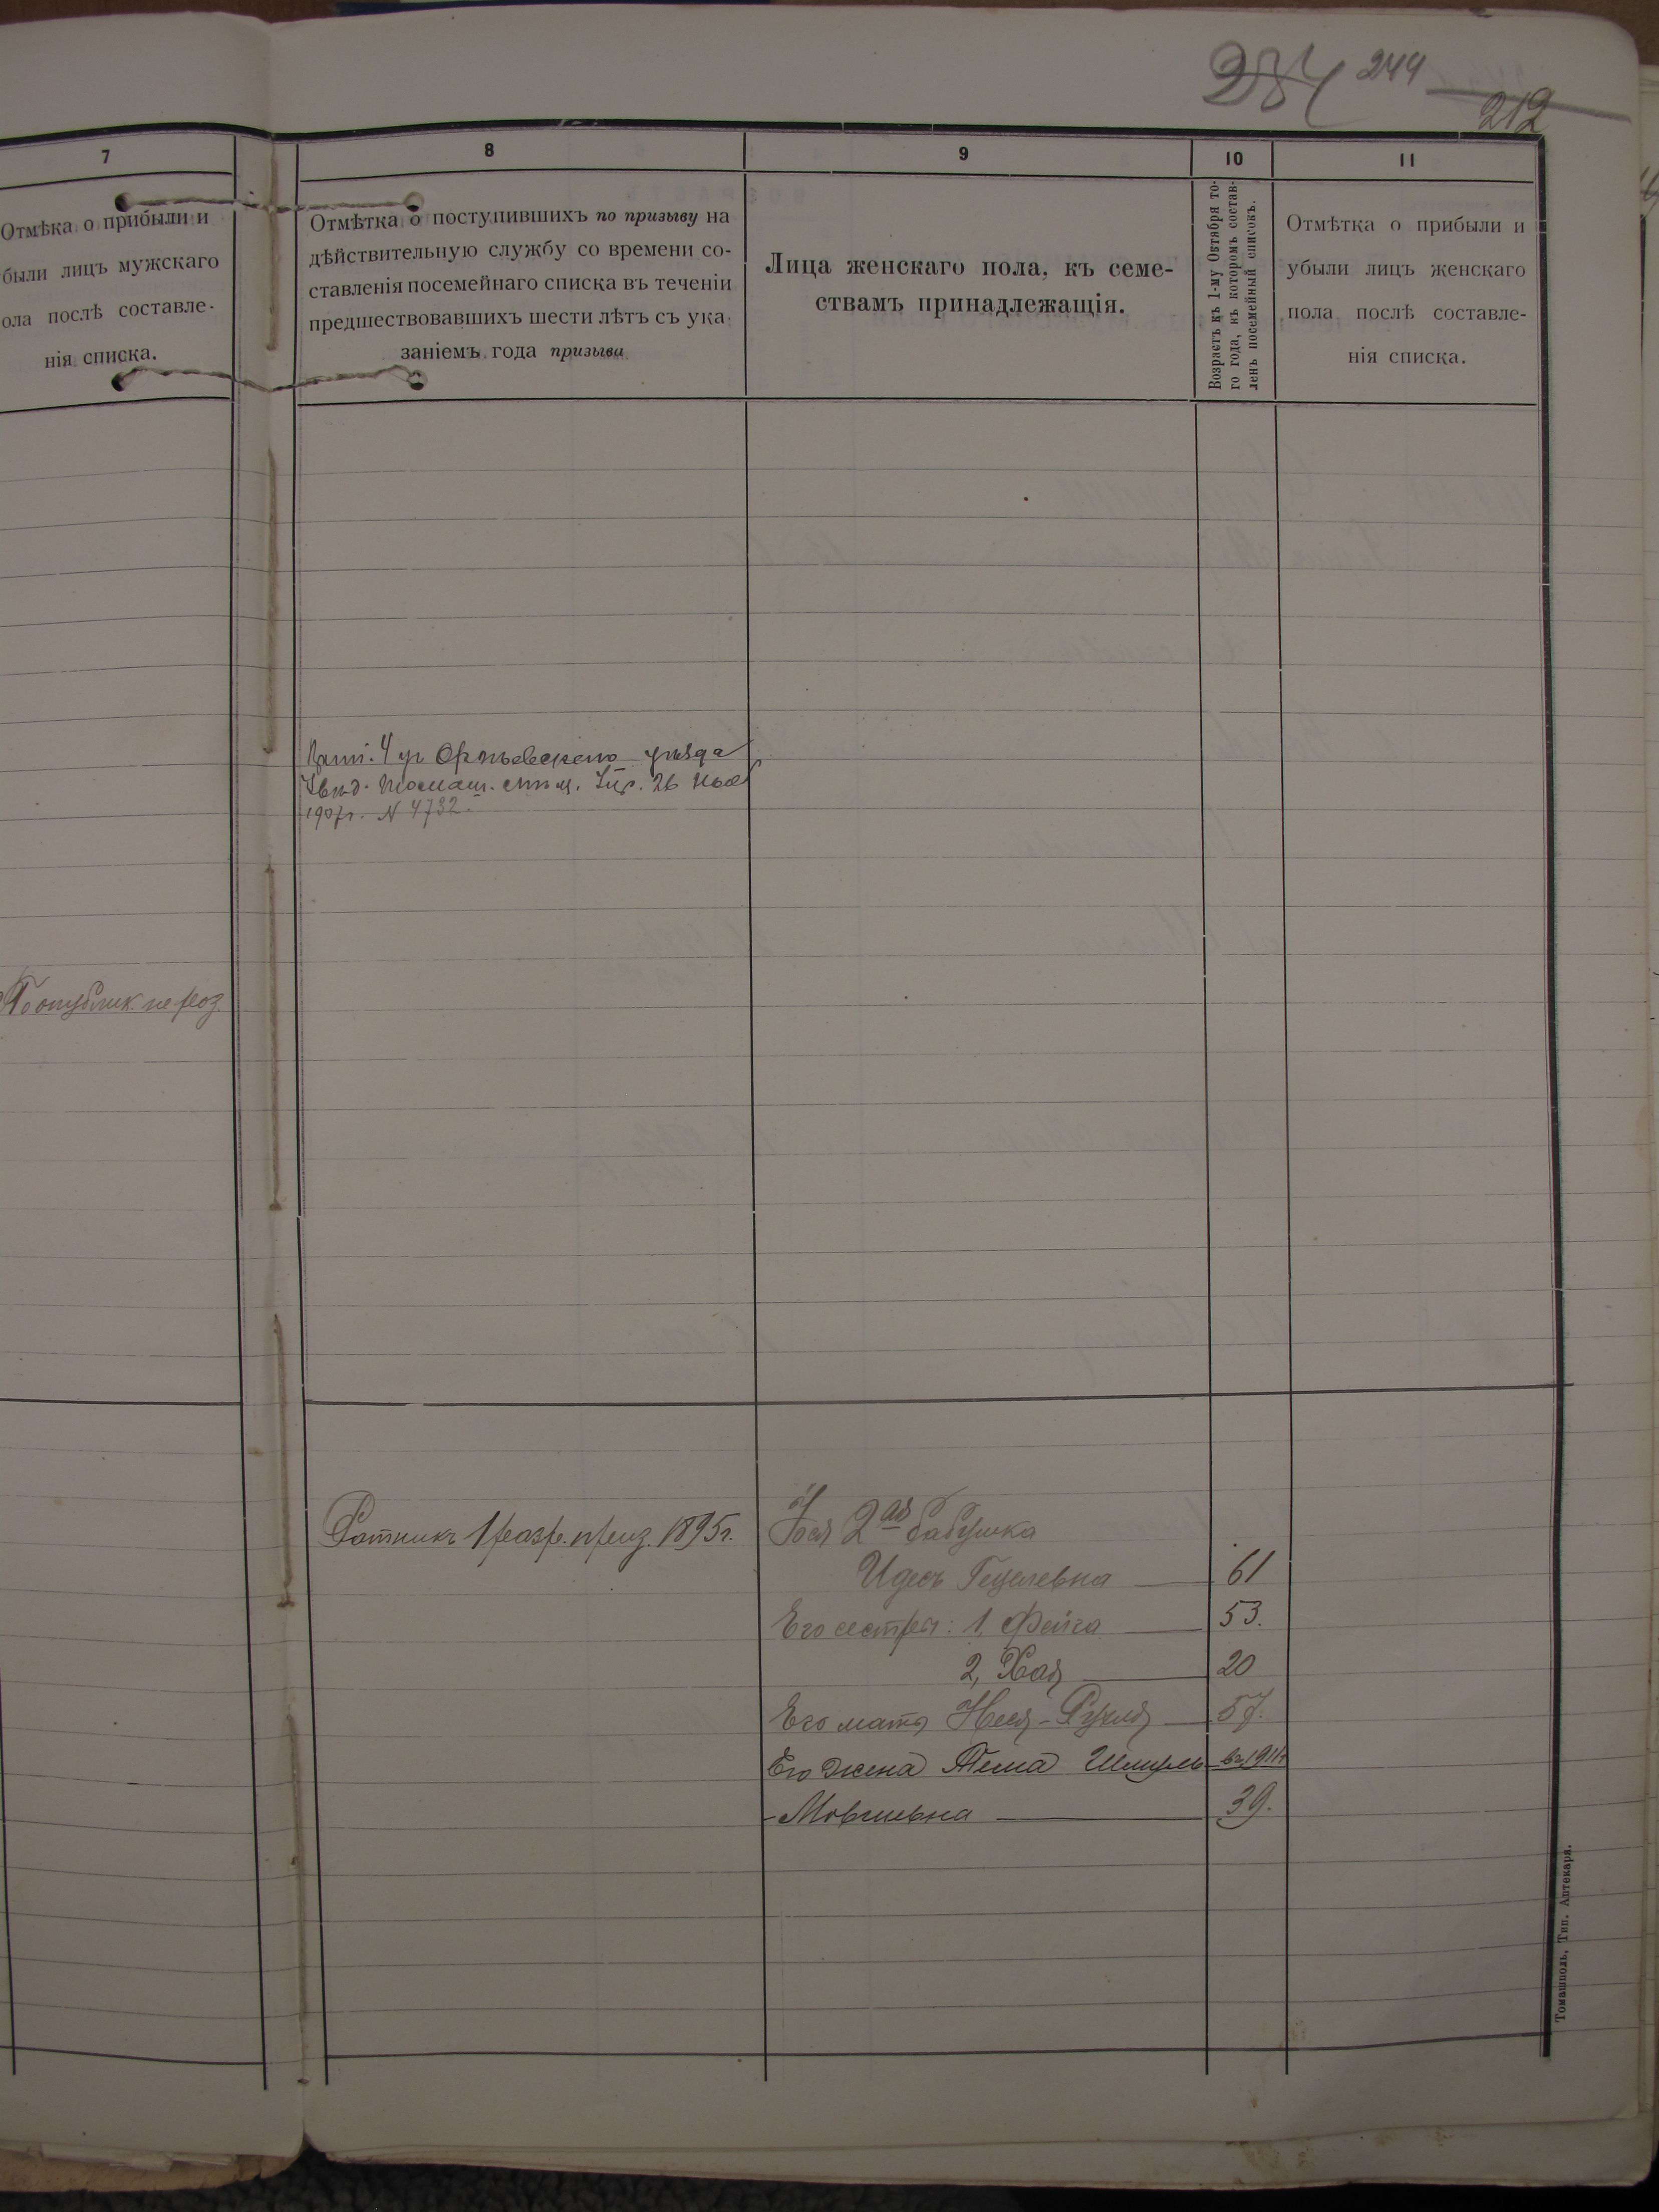 284 244
212
7
8
9
10
11
Отмѣка о прибыли и
были лицъ мужскаго
ола послѣ составле-
нія списка.
Отмѣтка о поступившихъ по призыву на
дѣйствительную службу со времени со-
ставленія посемейнаго списка въ теченіи
предшествовавшихъ шести лѣтъ съ ука-
заніемъ года призыва
Лица женскаго пола, къ семе-
ствамъ принадлежащія.
Возрастъ къ 1-му Октября то-
го года, къ которомъ состав-
ленъ посемейный списокъ.
Отмѣтка о прибыли и
убыли лицъ женскаго
пола послѣ составле-
нія списка.
4 уч Оргѣевскаго уѣзда
Увѣд. Томаш. мѣщ. Упр. 26 Ноя
1907г. N 4732.
По опублик. не роз.
Ратникъ 1 разр. приз. 1895г.
2ая бабушка
Идесъ Гецелевна 61
Его сестры: 1, Фейга 53.
2, Хая 20
Его мать Неся-Рухля 57.
Его жена Тема Шмуль въ 1911г
-Мовшевна 39.
Томашполь, Тип. Аптекаря.